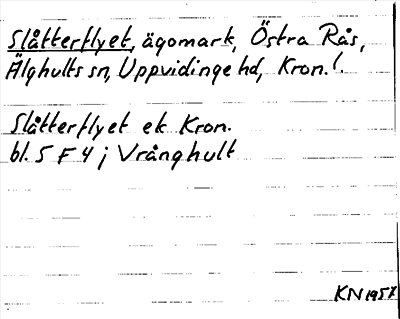 Slåtterflyet, ägomark, Östra Rås,
Älghults sn, Uppvidinge hd, Kron. l.
Slåtterflyet ek Kron.
bl. 5 F 4 j Vrånghult
KN 1957